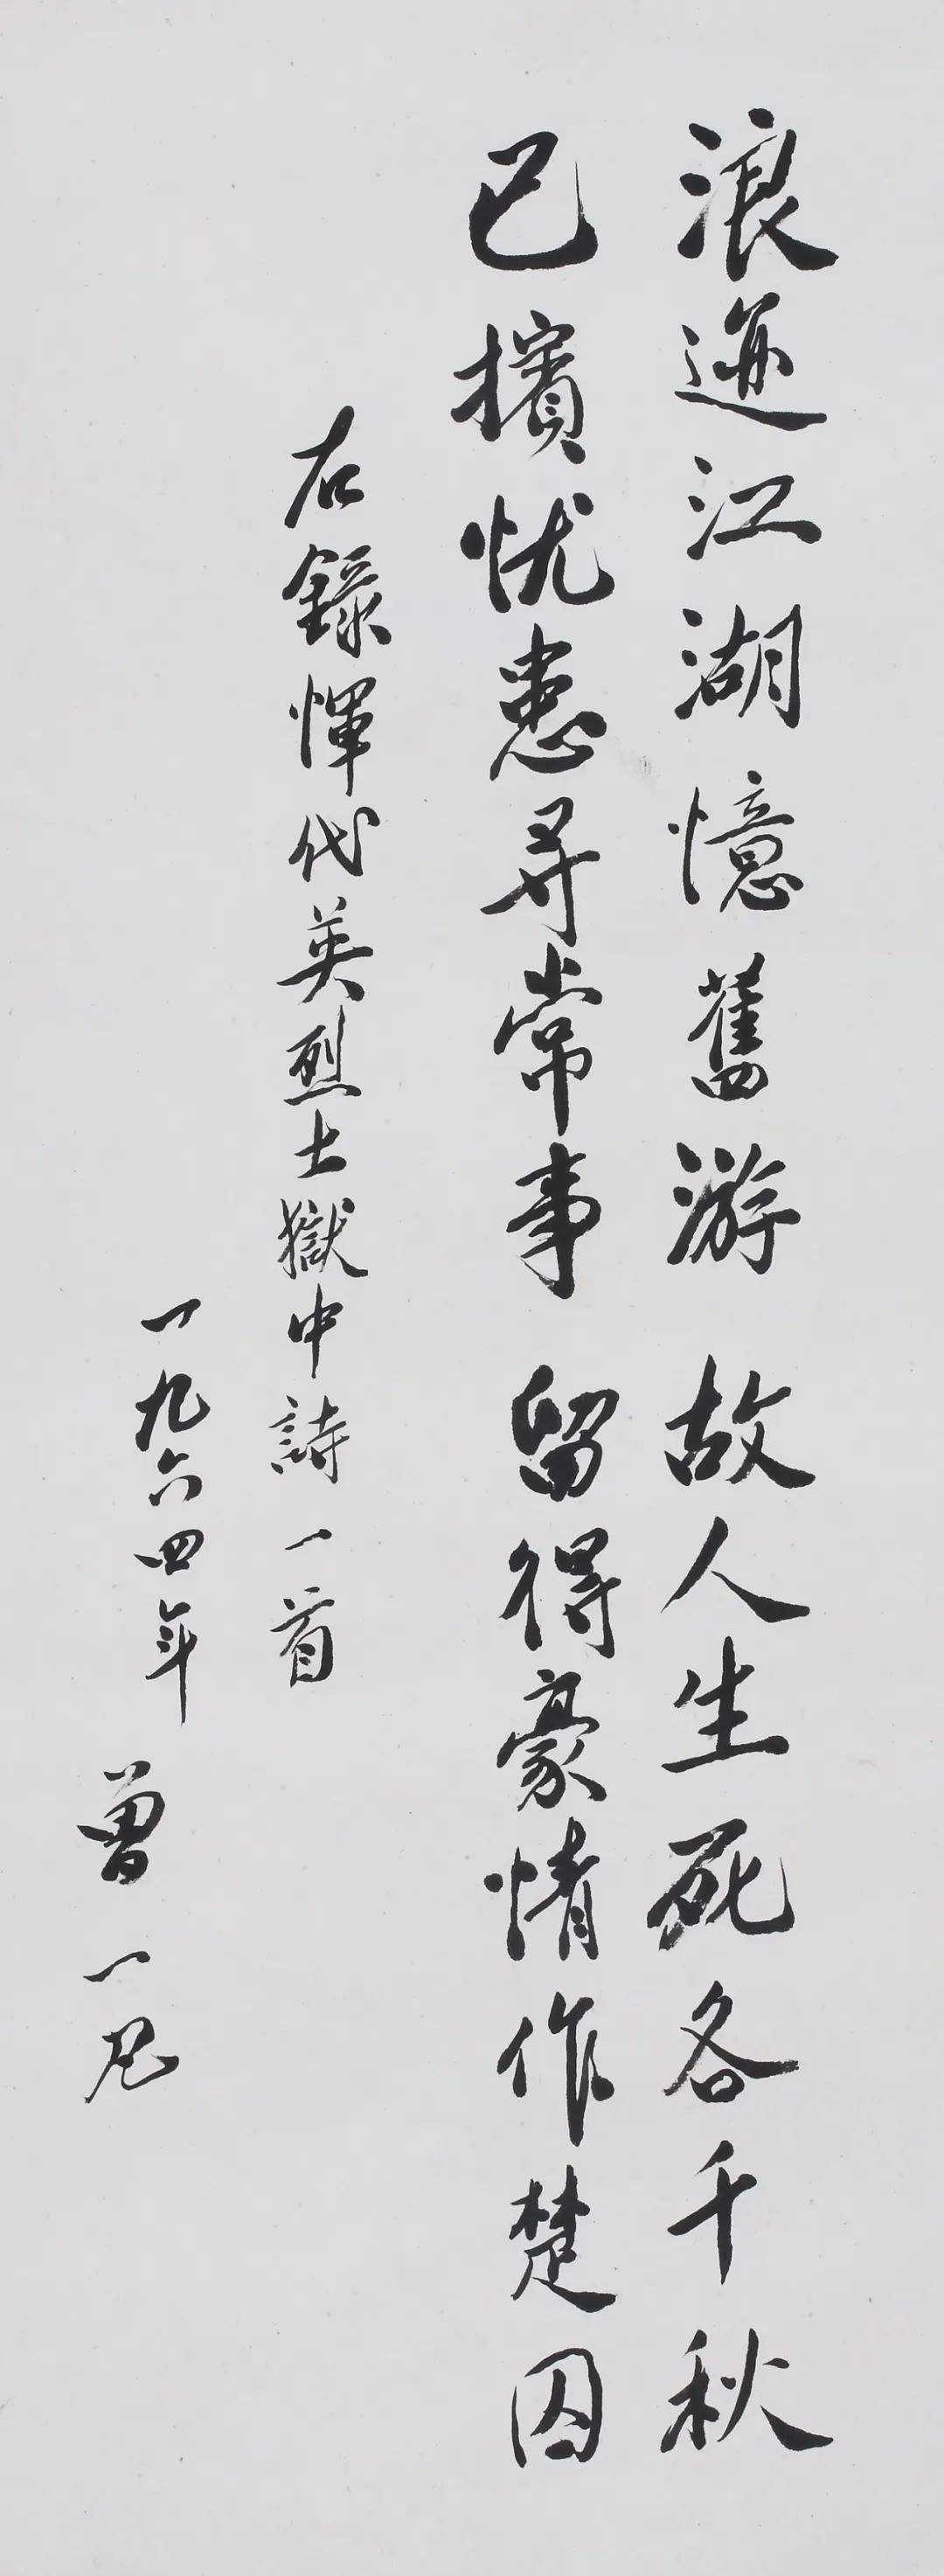 浪迹江湖憶舊游故人生死各千秋
已擯忧患尋常事留得豪情作楚囚
右錄惲代英烈士獄中詩一首
一九六四年
曾一凡